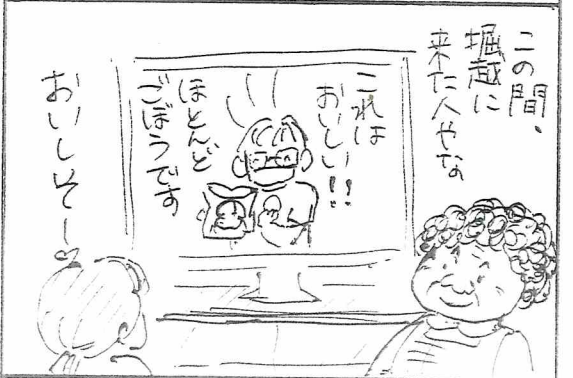 この間、
堀越に
来た人やな
これは
おいしい!!
ほとんど
ごぼうです
おいしそ～